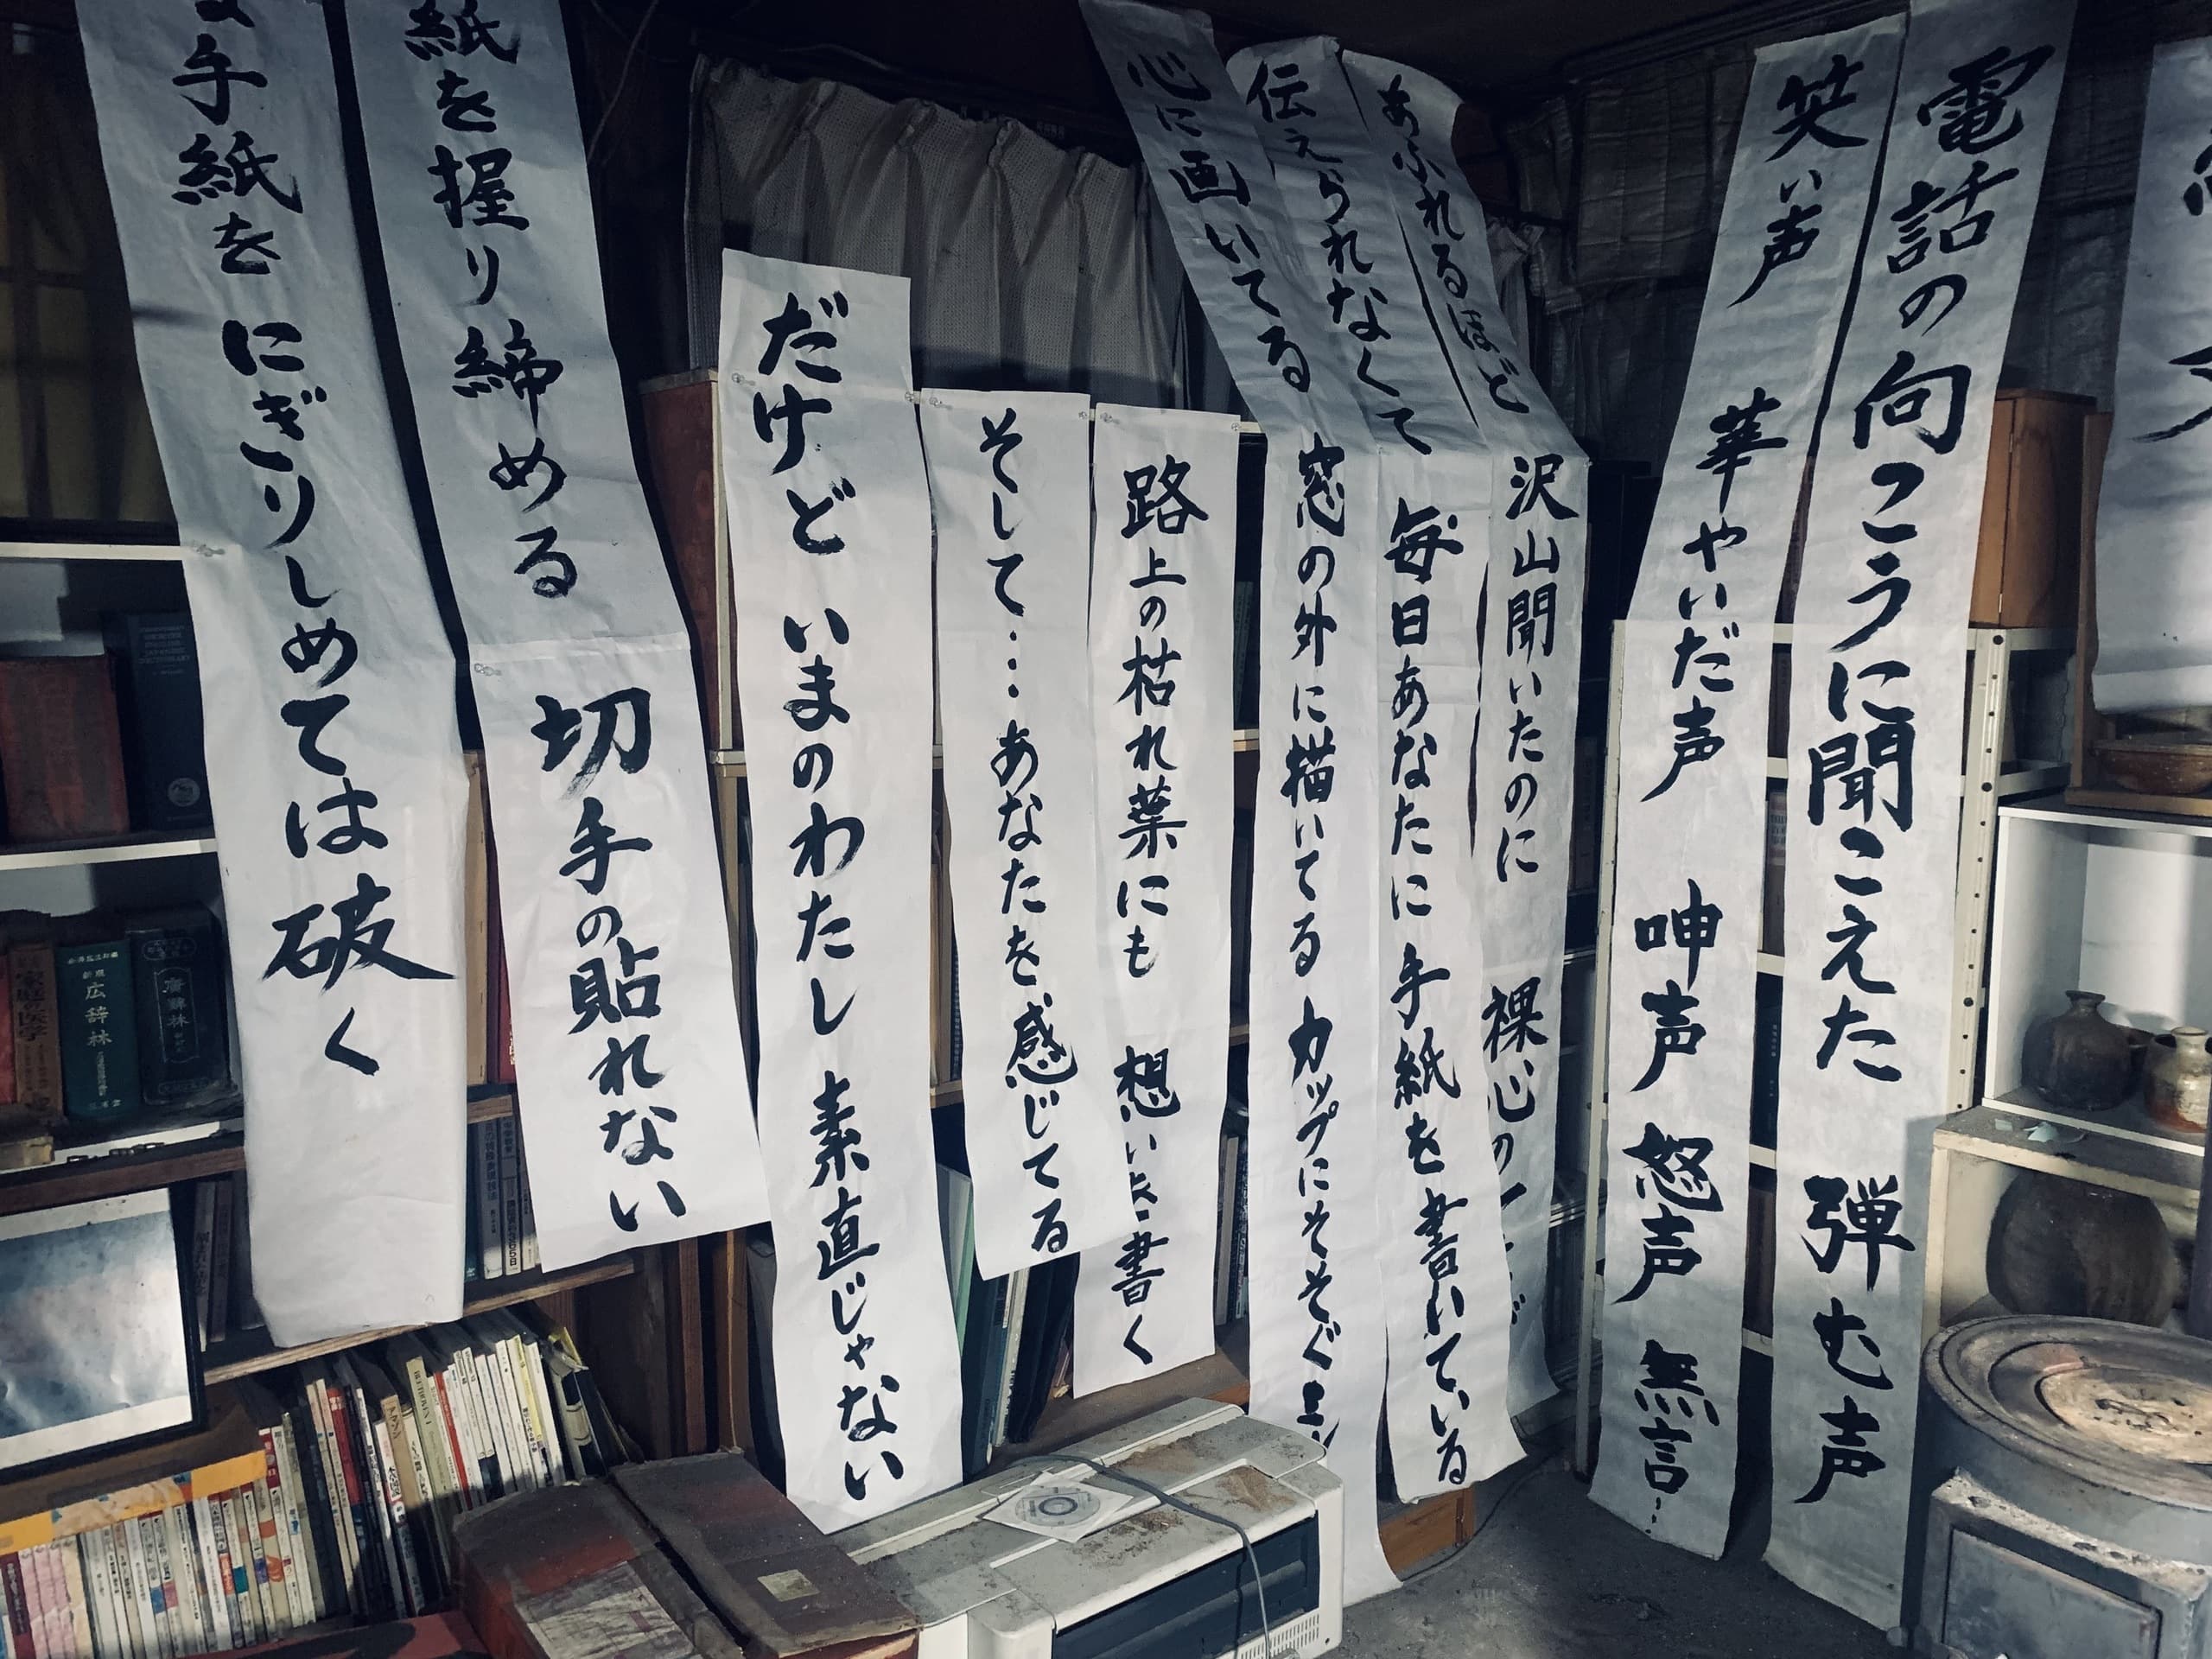 電話の向こうに聞こえた 弾む声
笑い声 華やいだ声 呻声 怒声 無言…
あふれるほど 沢山聞いたのに 裸心の
伝えられなくて 毎日あなたに手紙を書いている
心に画いてる 窓の外に描いてる カップにそそぐ
路上の枯れ葉にも 想い 書く
そして… あなたを感じてる
だけど いまのわたし 素直じゃない
紙を握り締める 切手の貼れない
手紙を にぎりしめては破く
広辞林
廣辭林
家庭の医学